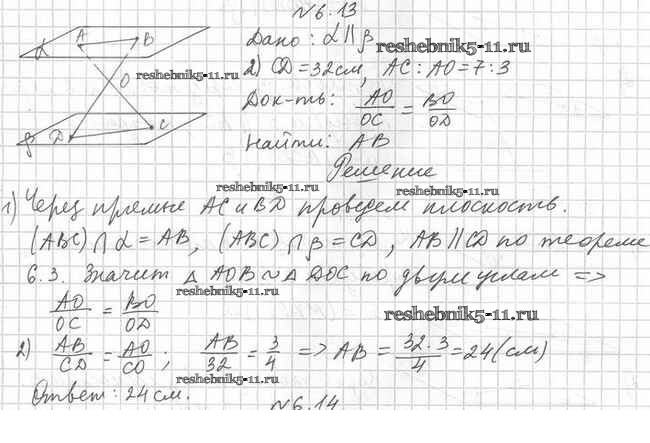 №6.13
A B
α
Дано: α∥β
reshebnik5-11.ru
O
reshebnik5-11.ru
2) CD=32см, AC:AO=7:3
Док-ть: AO/OC = BO/OD
D C
β
Найти: AB
Решение
reshebnik5-11.ru
reshebnik5-11.ru
1) Через прямые AC и BD проведем плоскость.
(ABC)∩α=AB, (ABC)∩β=CD, AB∥CD по теореме
6.3. Значит △AOB∾△DOC по двум углам =>
reshebnik5-11.ru
AO/OC = BO/OD
reshebnik5-11.ru
2) AB/CD = AO/CO; AB/32 = 3/4 => AB = 32·3/4 = 24(см)
reshebnik5-11.ru
Ответ: 24см.
№6.14